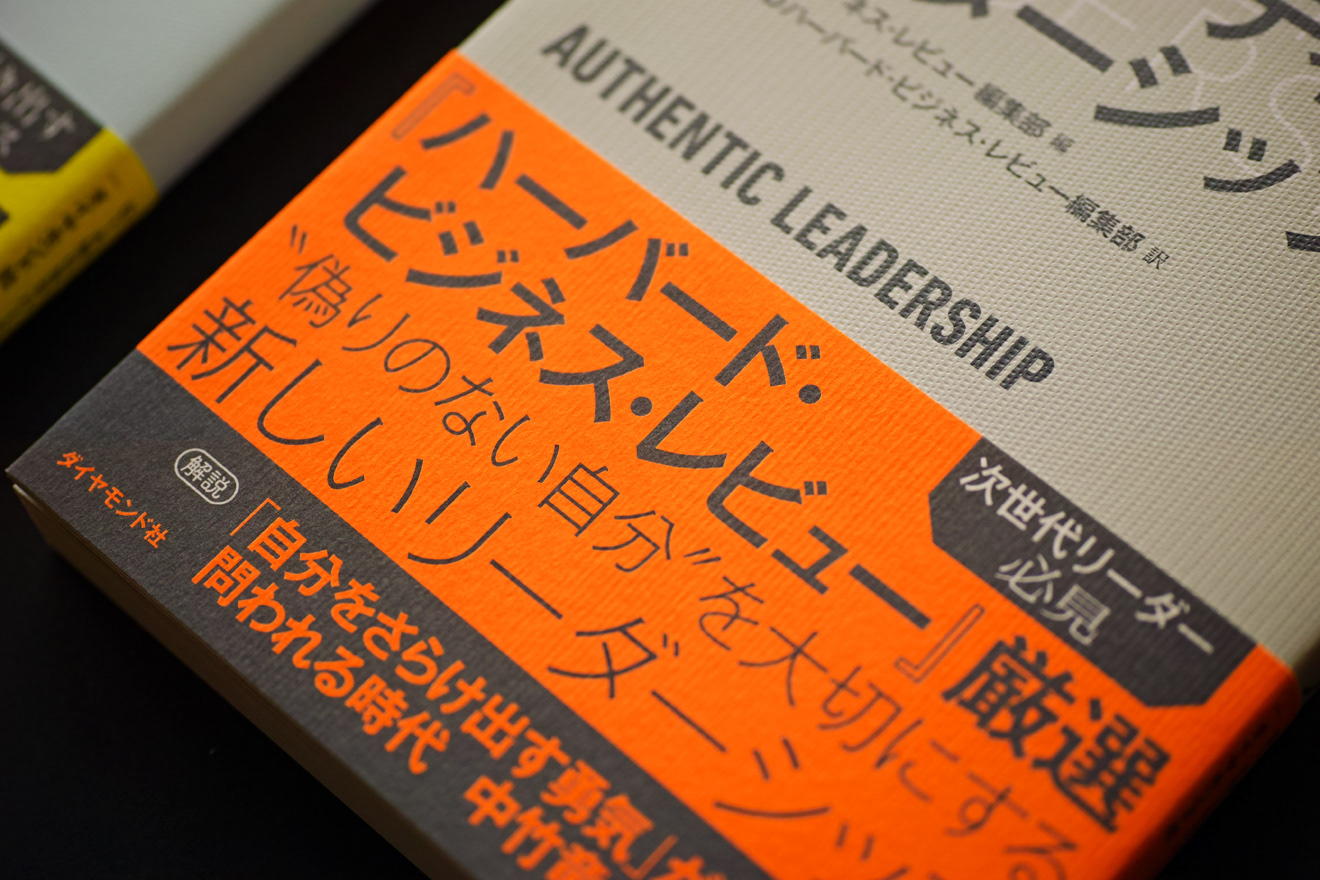 ーシッ
ネス・レビュー編集部 編
ハーバード・ビジネス・レビュー編集部 訳
AUTHENTIC LEADERSHIP
『ハーバード・
ビジネス・レビュー』厳選
〝偽りのない自分〟を大切にする
新しいリーダーシッ
次世代リーダー
必見
解説
「自分をさらけ出す勇気」が
問われる時代
中竹竜
ダイヤモンド社
出す
ス